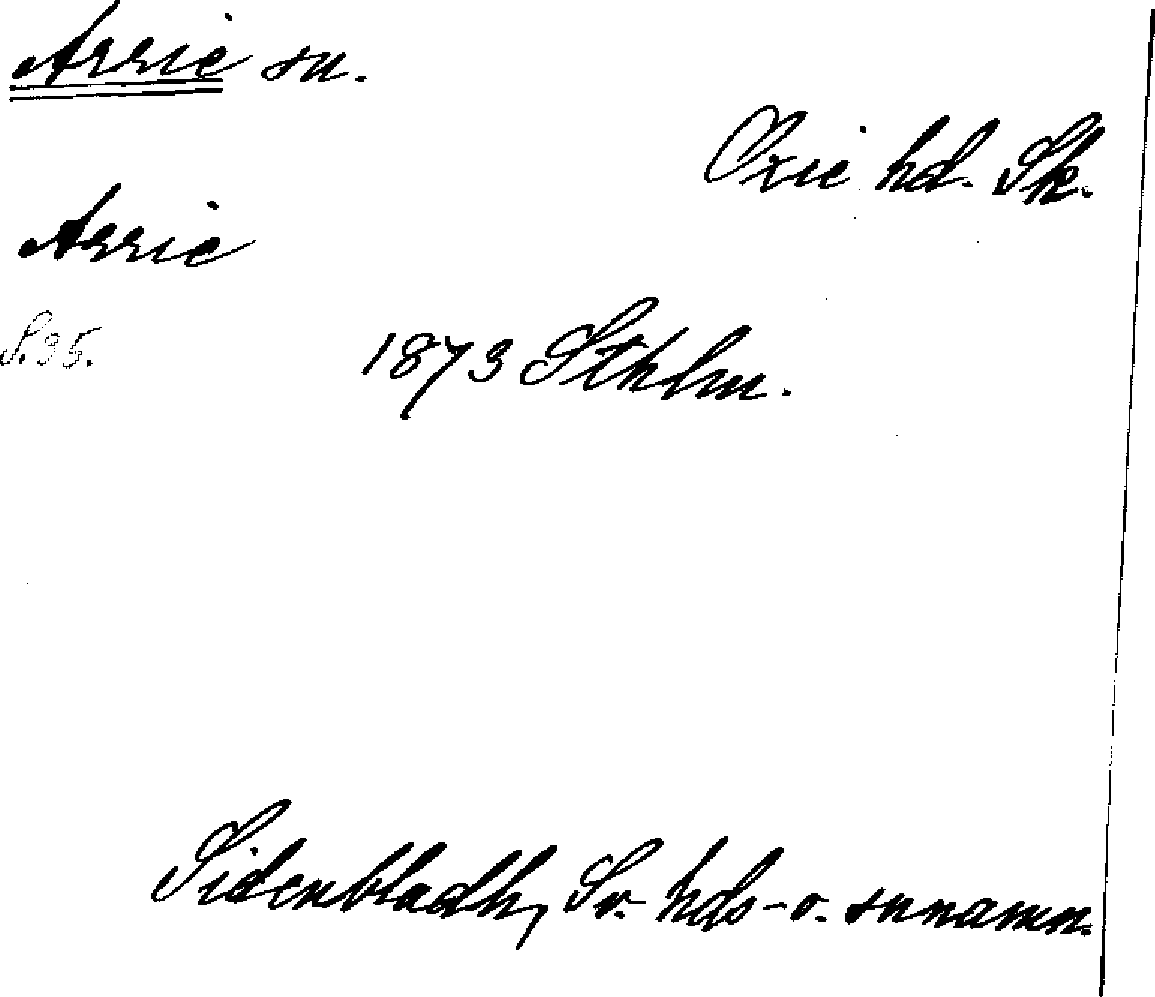 Arrie sn.
Oxie hd. Sk.
Arrie
S. 35.
1873 Sthlm.
Sidenbladh, Sv. hds- o. snnamn.